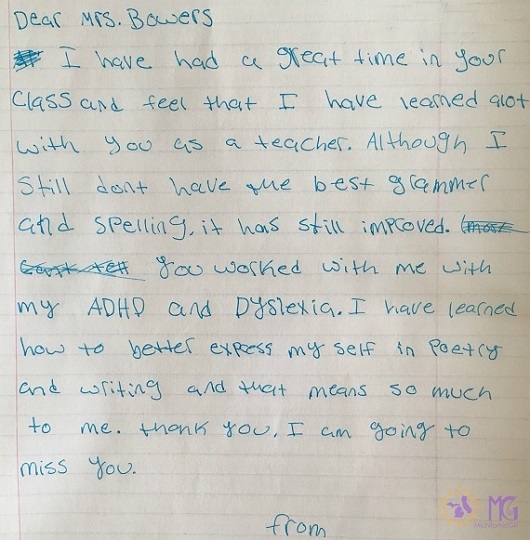 Dear Mrs. Bowers
I have had a great time in your
class and feel that I have learned alot
with you as a teacher. Although I
Still dont have the best grammer
and spelling, it has still improved.
You worked with me with
my ADHD and Dyslexia. I have learned
how to better express my self in Poetry
and writing and that means so much
to me. thank you, I am going to
miss you.
from
MG